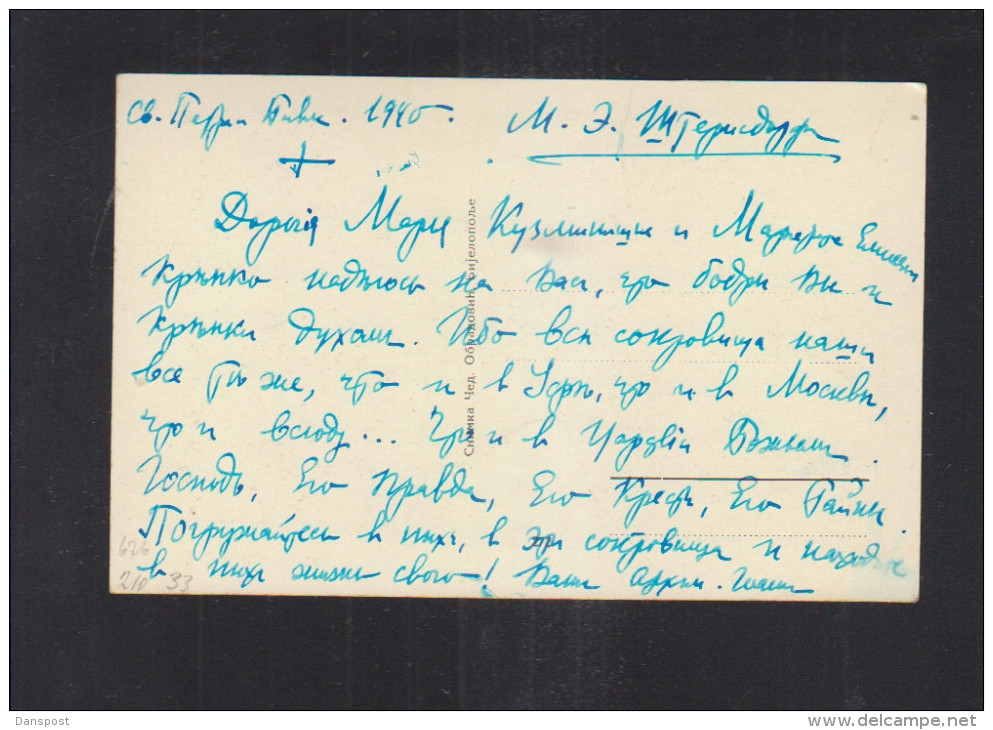 Св. Петра Павл. 1940.
М. Э. Штерисдорфа
Дорогія Марія Кузминишна и Маргарита
Крѣпко надѣюсь на Васъ, что бодры Вы и
Крѣпки духомъ. Ибо всѣ сокровища наши
все тѣ же, что и в Югрѣ, что и в Москвѣ,
что и всюду... Что и в Царствіи Божьемъ.
Господь, Его Правда, Его Крестъ, Его Тайны.
Погружайтесь в нихъ, в эти сокровища и находите
в нихъ жизнь свою! Вашъ Архим. Іоаннъ
Снимка Чед. Обрадовић Бијелопоље
676
210 33
Danspost
delcampe.net